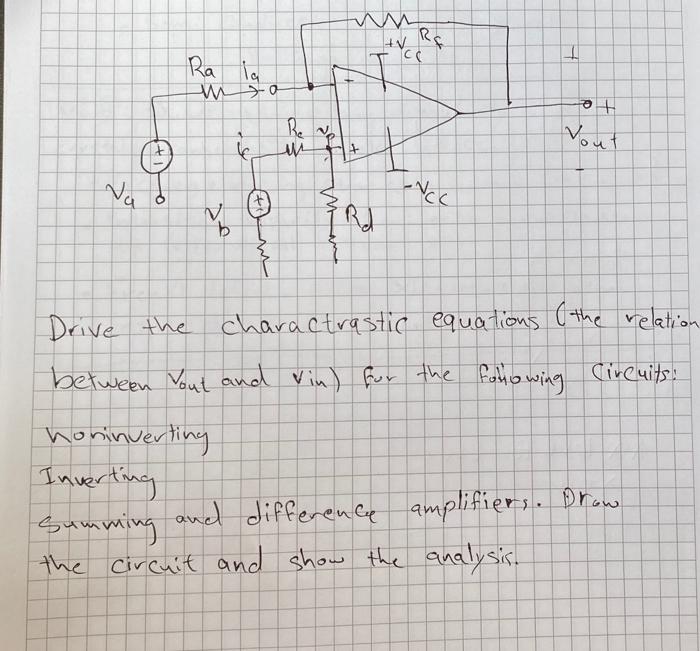 Rf
+Vcc
Ra ia
-
+
Rc vp
ic
+
Vout
-
-Vcc
+
-
Va
+
-
Vb
Rd
Drive the charactrastic equations (the relation
between Vout and Vin) for the following Circuits:
noninverting
Inverting
Summing and difference amplifiers. Draw
the circuit and show the analysis.